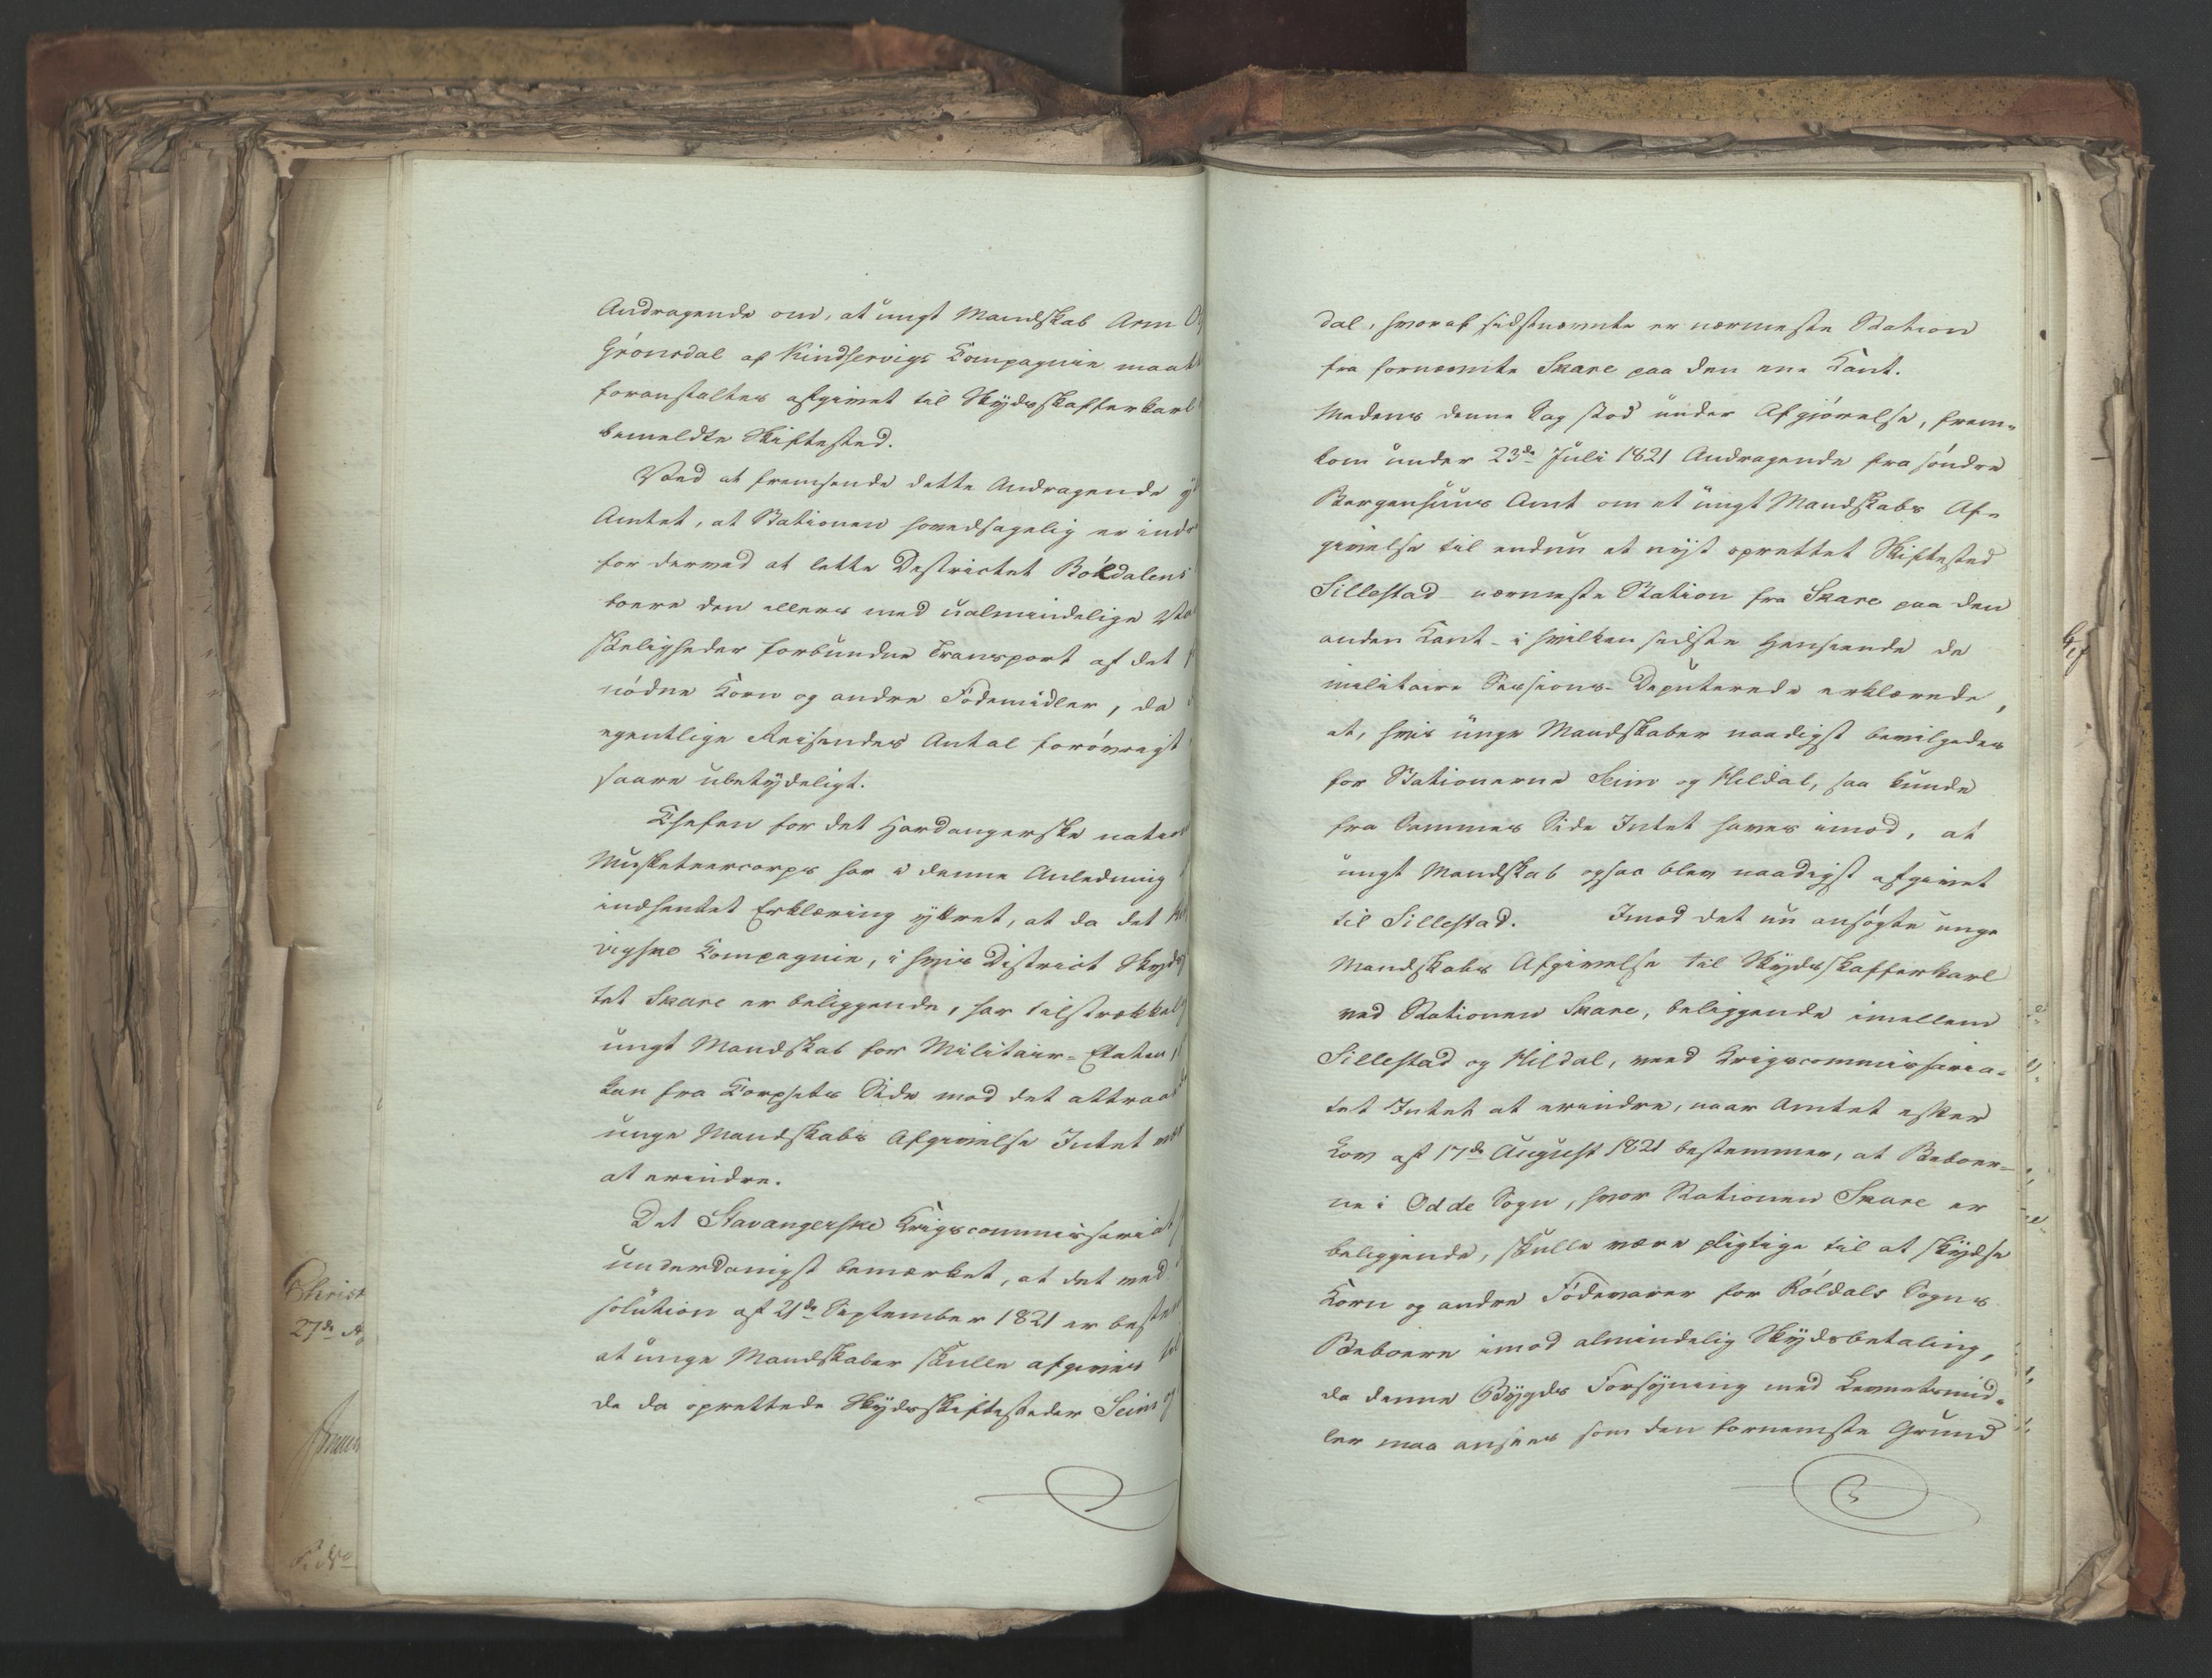 Andragende om, at ungt Mandskab Arne
Grönsdal af Kindservigs Compagnie maat
foranstaltes afgivet til Skydsskafferkarl
bemeldte Skiftested.
Ved at fremsende dette Andragende
Amtet, at Stationen hovedsagelig er ind
for derved at lette Districtet Röldalens
boere den ellers med ualmindelige Va
skeligheder forbundne Transport af det
nödne Korn og andre Födemidler, da
egentlige Reisendes Antal forövrigt
saare ubetydeligt.
Chefen for det Hardangerske natio
Musketeercorps har i denne Anledning
indhentet Erklæring yttret, at da det
vigske Compagnie, i hvis District Skyds
tet Skare er beliggende, har tilstrækkel
ungt Mandskab for Militair-Etaten,
kan fra Corpsets Side mod det attraa
unge Mandskabs Afgivelse Intet
at erindre.
Det Stavangerske Krigscommissariat
underdanigst bemærket, at det ved
solution af 21de September 1821 er beste
at unge Mandskaber skulle afgives til
de da oprettede Skydsskiftesteder Seim og
dal, hvoraf sidstnævnte er nærmeste Station
fra fornævnte Skare paa den ene Kant.
Medens denne Sag stod under Afgjörelse, frem-
kom under 23de Juli 1821 Andragende fra söndre
Bergenhuus Amt om et ungt Mandskabs Af-
givelse til endnu et nyt oprettet Skiftested
Sillestad - nærmeste Station fra Skare paa den
anden Kant - i hvilken sidste Henseende de
militaire Sessions-Deputerede erklærede,
at, hvis unge Mandskaber naadigst bevilgedes
for Stationerne Seim og Hildal, saa kunde
fra Sammes Side Intet haves imod, at
ungt Mandskab ogsaa blev naadigst afgivet
til Sillestad. Imod det nu ansögte unge
Mandskabs Afgivelse til Skydsskafferkarl
ved Stationen Skare, beliggende imellem
Sillestad og Hildal, veed Krigscommissaria-
tet Intet at erindre, naar Amtet efter
Lov af 17de August 1821 bestemmer, at Beboer-
ne i Odde Sogn, hvor Stationen Skare er
beliggende, skulle være pligtige til at skydse
Korn og andre Födevarer for Röldals Sogns
Beboere imod almindelig Skydsbetaling,
da denne Bygds Forsyning med Levnetsmid-
ler maa ansees som den fornemste Grund